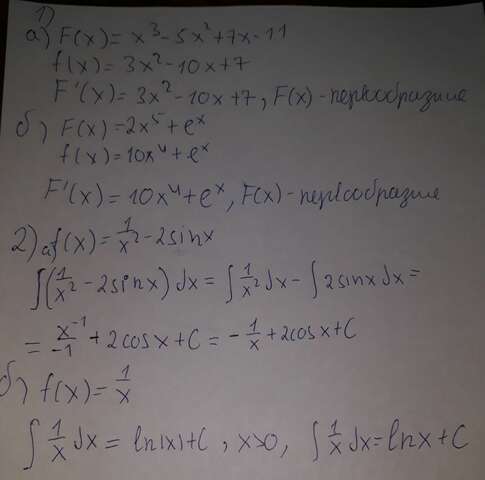 1)
а) F(x) = x³ - 5x² + 7x - 11
f(x) = 3x² - 10x + 7
F'(x) = 3x² - 10x + 7, F(x) - первообразние
б) F(x) = 2x⁵ + eˣ
f(x) = 10x⁴ + eˣ
F'(x) = 10x⁴ + eˣ, F(x) - первообразние
2) а) f(x) = 1/x² - 2sinx
∫(1/x² - 2sinx) dx = ∫ 1/x² dx - ∫ 2sinx dx =
= x⁻¹/-1 + 2cosx + C = - 1/x + 2cosx + C
б) f(x) = 1/x
∫ 1/x dx = ln|x| + C, x>0, ∫ 1/x dx = lnx + C